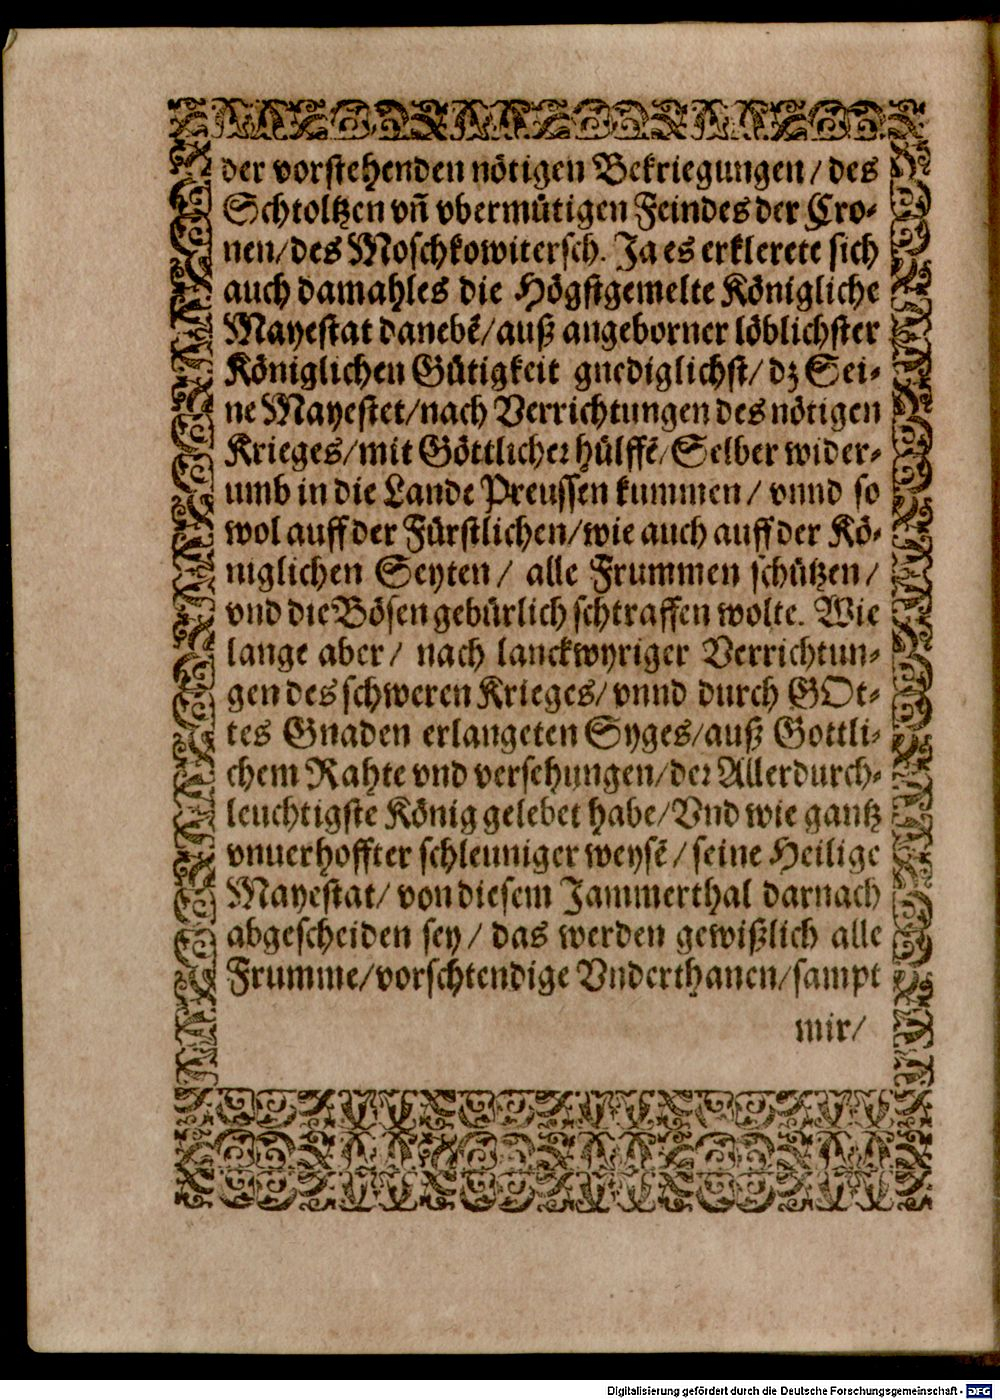 der vorstehenden nötigen Bekriegungen/ des
Schtoltzen vñ vbermütigen Feindes der Cro-
nen/ des Moschkowitersch. Ja es erklerete sich
auch damahles die Högstgemelte Königliche
Mayestat danebẽ/ auß angeborner löblichster
Königlichen Gütigkeit gnediglichst/ dz Sei-
ne Mayestet/ nach Verrichtungen des nötigen
Krieges/ mit Göttlicher hülffẽ/ Selber wider-
umb in die Lande Preussen kummen/ vnnd so
wol auff der Fürstlichen/ wie auch auff der Kö-
niglichen Seyten/ alle Frummen schützen/
vnd die Bösen gebürlich schtraffen wolte. Wie
lange aber/ nach lanckwyriger Verrichtun-
gen des schweren Krieges/ vnnd durch GOt-
tes Gnaden erlangeten Syges/ auß Gottli-
chem Rahte vnd versehungen/ der Allerdurch-
leuchtigste König gelebet habe/ Vnd wie gantz
vnuerhoffter schleuniger weysẽ/ seine Heilige
Mayestat/ von diesem Jammerthal darnach
abgescheiden sey/ das werden gewißlich alle
Frumme/ vorschtendige Vnderthanen/ sampt
mir/
Digitalisierung gefördert durch die Deutsche Forschungsgemeinschaft - DFG